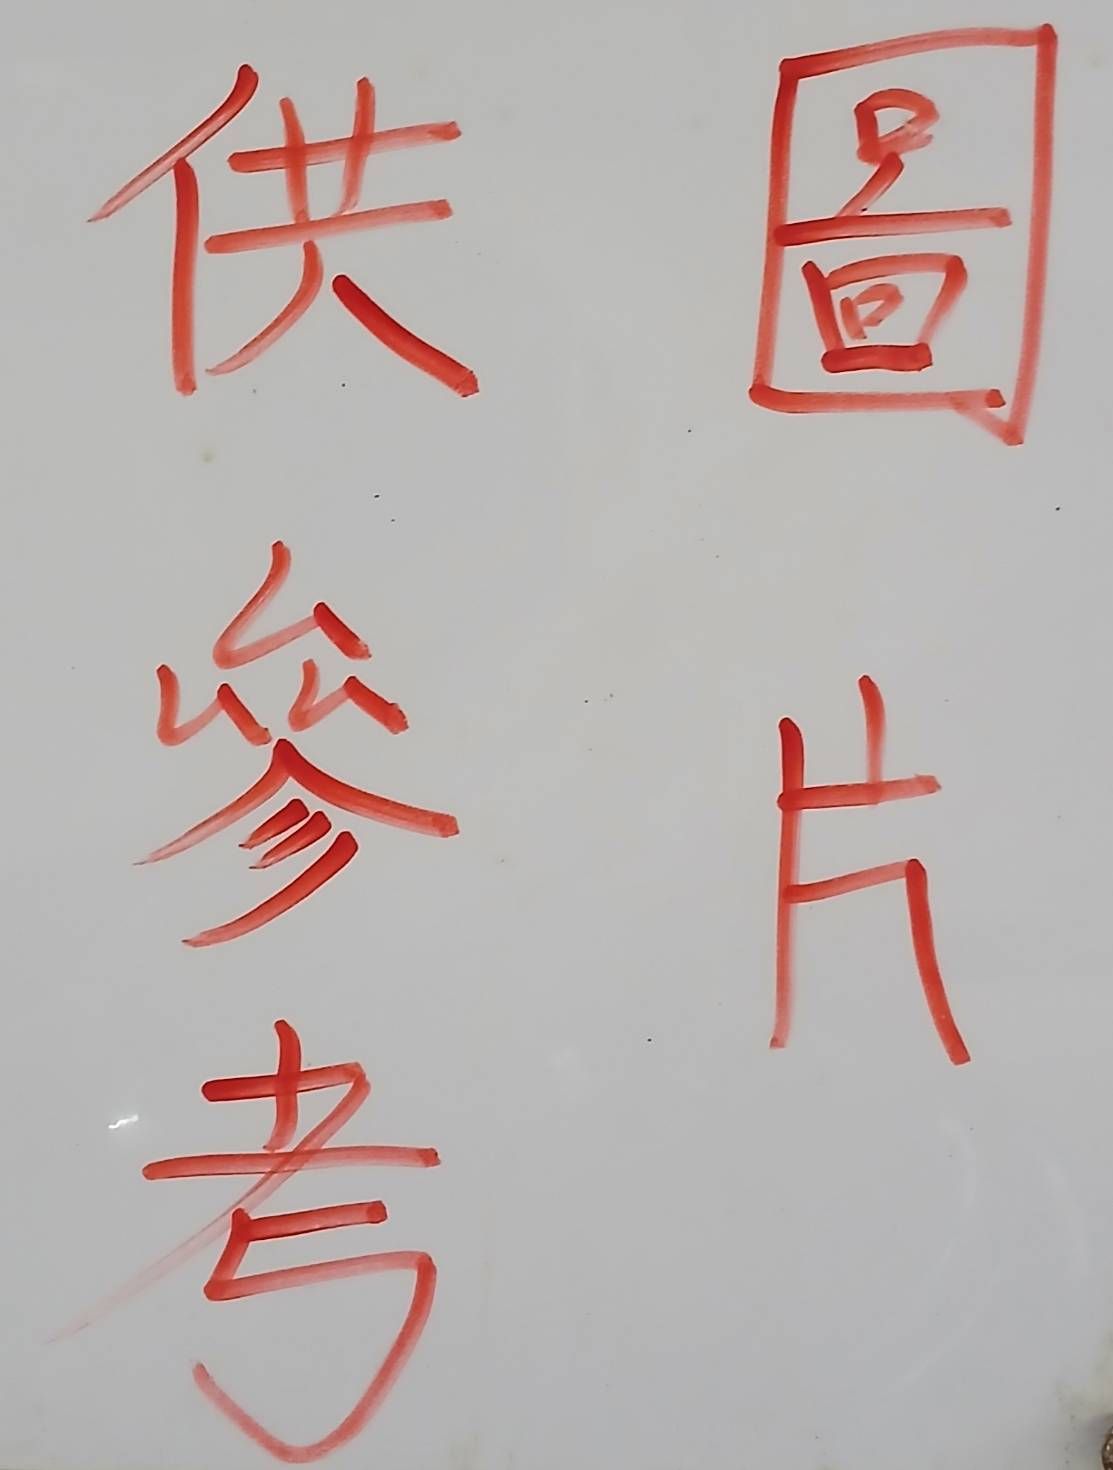 圖片
供參考